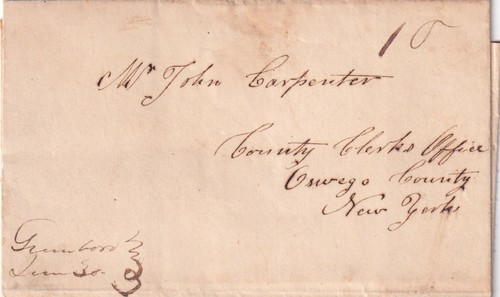 10
Mr John Carpenter
County Clerks Office
Oswego County
New York
30